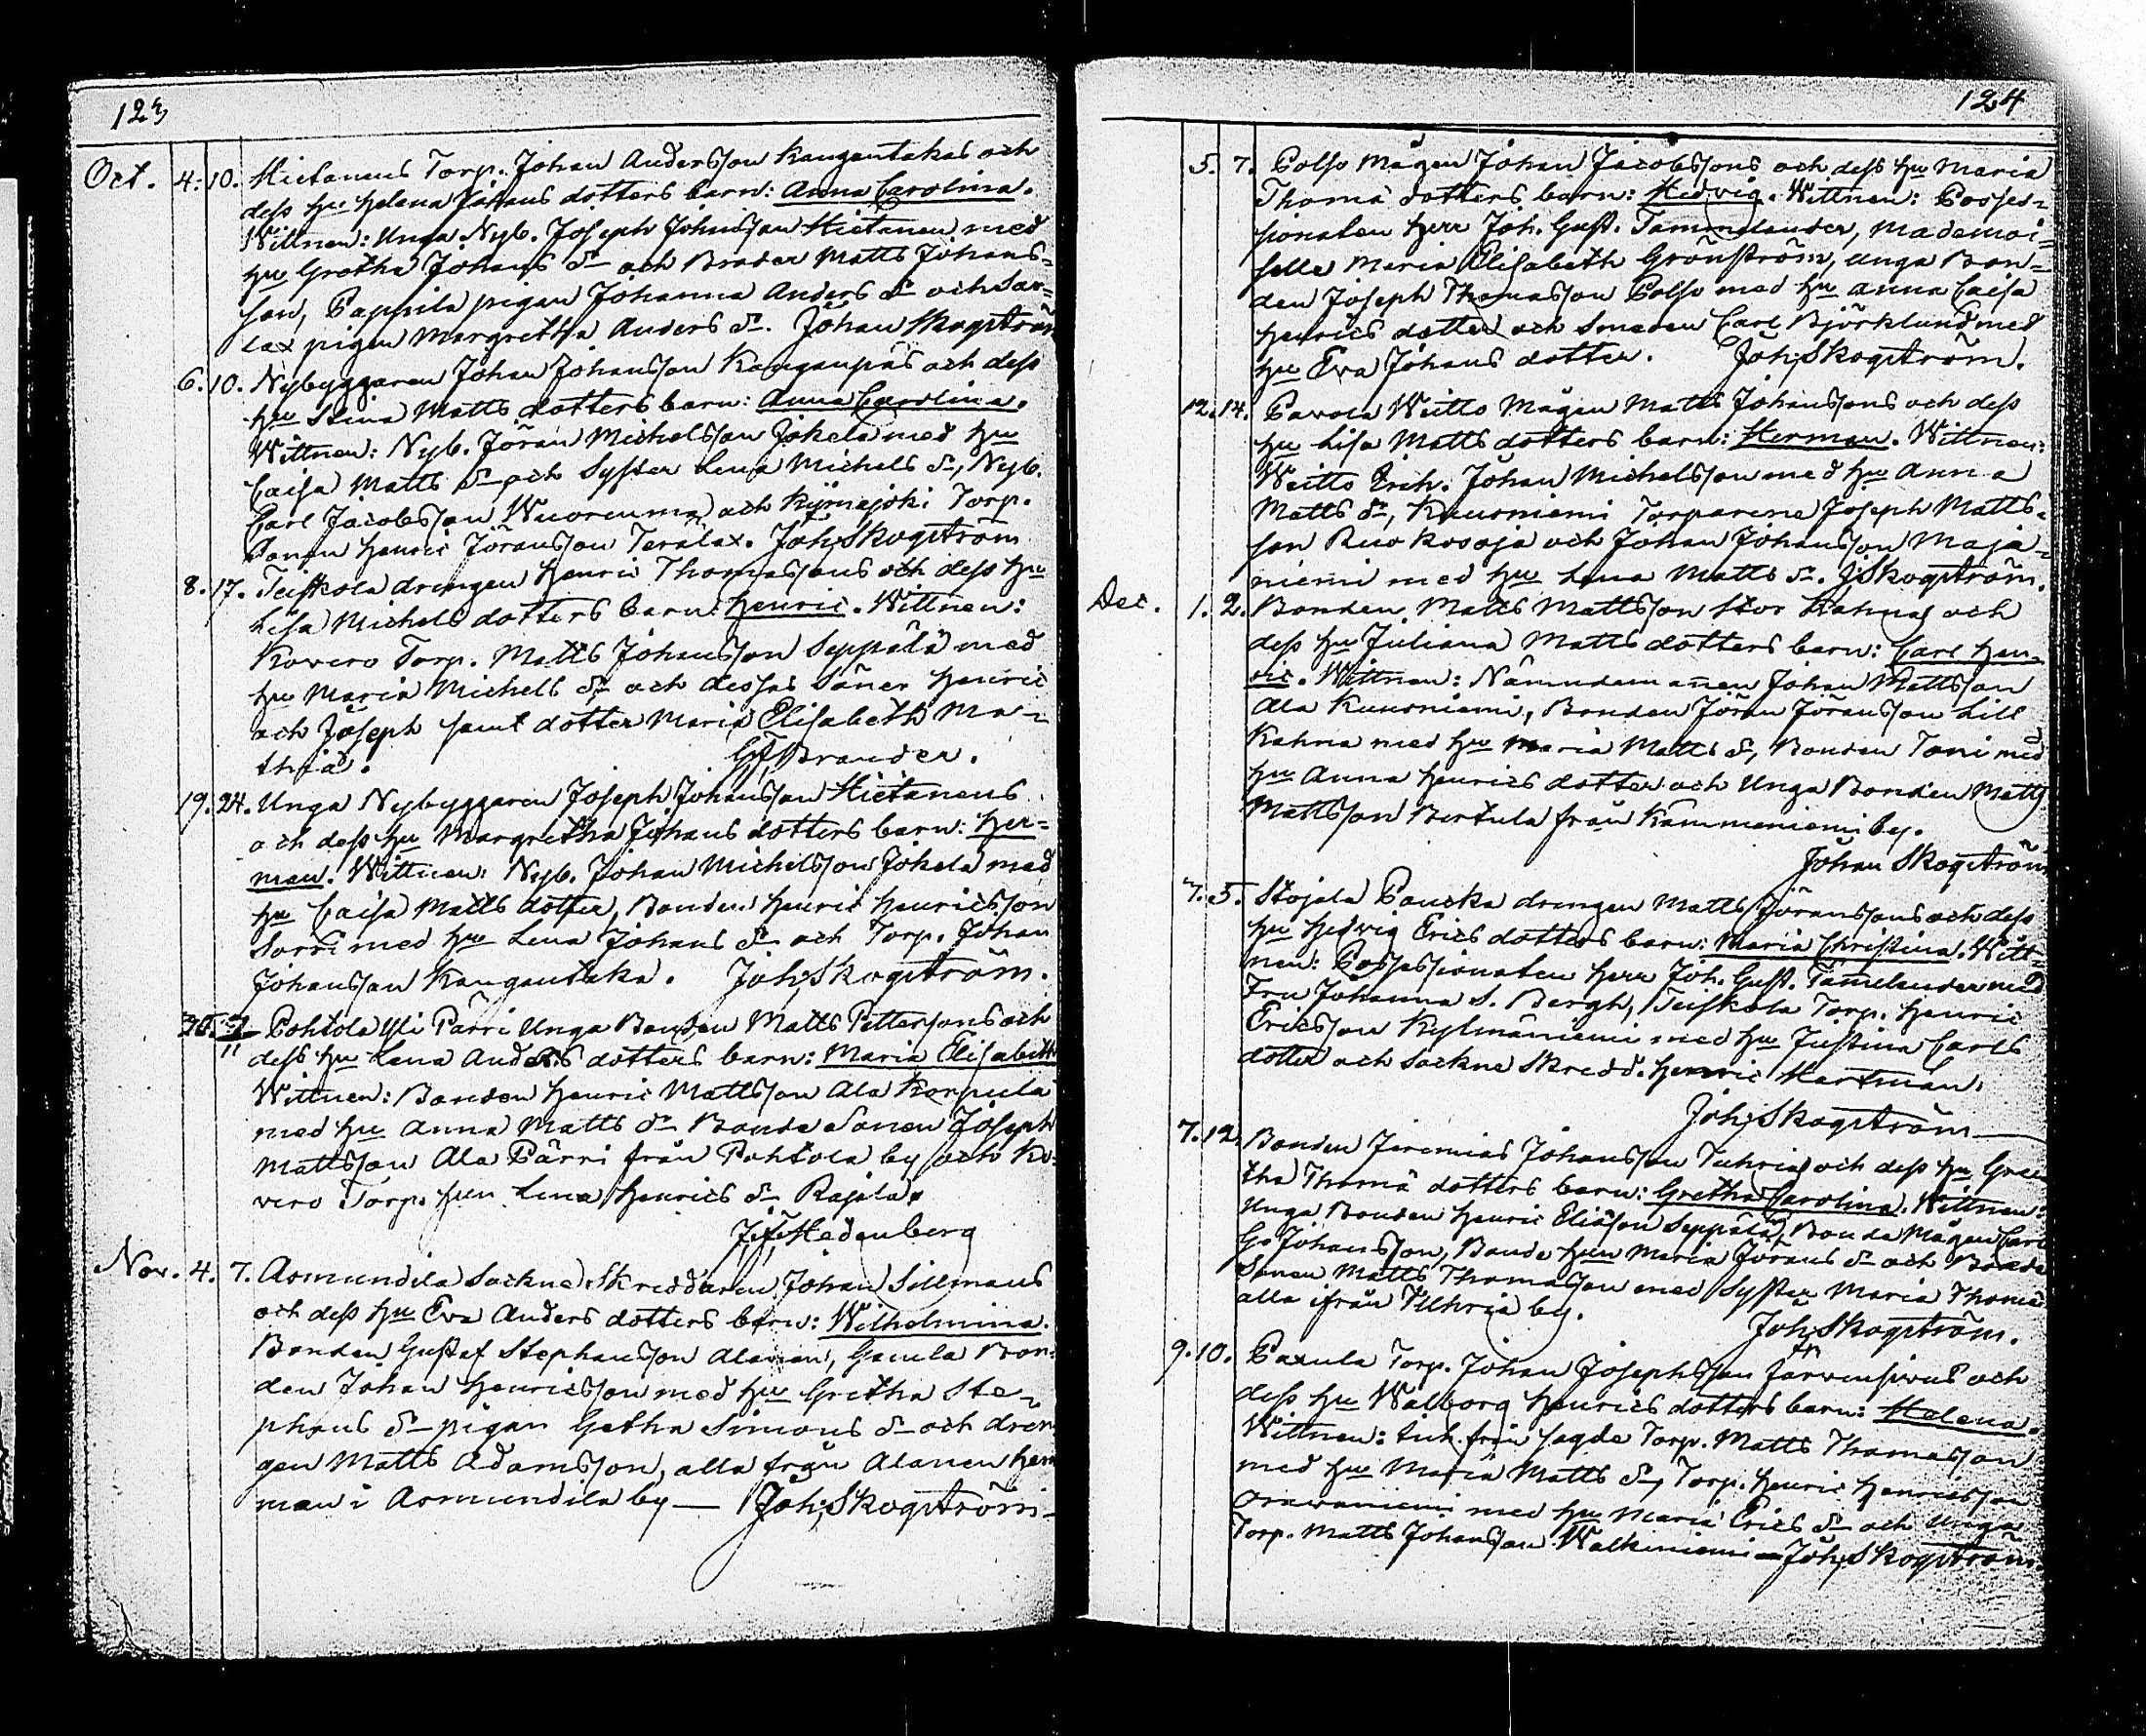 123
Oct. 4. 10. Hietanens Torp. Johan Andersson Kangentakas och
dess hu Helena Johans dotters barn: Anna Carolina.
Wittnen: Unga Nyb. Joseph Johansson Hietanen med
hu Gretha Johans dr och Broder Matts Johans=
son, Pappila pigan Johanna Anders dr och Sar=
lax pigan Margretha Anders dr. Johan Skogström
6. 10. Nybyggaren Johan Johansson Kanganpäs och dess
hu Stina Matts dotters barn: Anna Carolina.
Wittnen: Nyb. Jöran Michelsson Jokela med hu
Caisa Matts dr och Syster Lena Michels dr, Nyb.
Carl Jacobsson Wuorenma och Kijmejoki Torp.
Sonen Henric Jöransson Terälax. Joh. Skogström
8. 17. Teiskola drengen Henric Thomassons och dess hu
Lisa Michels dotters barn: Henric. Wittnen:
Kovero Torp. Matts Johansson Seppälä med
hu Maria Michels dr och dessas Söner Henric
och Joseph samt dotter Maria Elisabeth Ma=
thiä. G. F. Brander.
19. 24. Unga Nybyggaren Joseph Johansson Hietanens
och dess hu Margretha Johans dotters barn: Her=
man. Wittnen: Nyb. Johan Michelsson Jokela med
hu Caisa Matts dotter, Bonden Henric Henricsson
Sorri med hu Lena Johans dr och Torp. Johan
Johansson Kangentaka. Joh. Skogström.
30. 7/11 Pohtola Yli Pärri Unga Bonden Matts Petterssons och
dess hu Lena Anders dotters barn: Maria Elisabeth
Wittnen: Bonden Henric Mattsson Ala Korpula
med hu Anna Matts dr Bonde Sonen Joseph
Mattsson Ala Pärri från Pohtola by och Ko=
vero Torp. hun Lena Henrics dr Rajala.
J. F. Hedenberg
Nov. 4. 7. Asmundila Sockne Skreddaren Johan Sillmans
och dess hu Eva Anders dotters barn: Wilhelmina.
Bonden Gustaf Stephansson Alanen, Gamla Bon=
den Johan Henricsson med hu Gretha Ste=
phans dr pigan Gretha Simons dr och dren
gen Matts Adamsson, alla från Alanen hem
man i Asmundila by — Joh. Skogström
124
5. 7. Polso Mågen Johan Jacobssons och dess hu Maria
Thomä dotters barn: Hedvig. Wittnen: Posses=
sionaten Herr Joh. Gust. Tammelander, Mademoi=
selle Maria Elisabeth Grönström, unga Bon=
den Joseph Thomasson Polso med hu Anna Caisa
Henrics dotter och Smeden Carl Björklund med
hu Eva Johans dotter. Joh. Skogström.
12. 14. Pavola Weitto Mågen Matts Johanssons och dess
hu Lisa Matts dotters barn: Herman. Wittnen:
Weitto Enk. Johan Michelsson med hu Anna
Matts dr, Kuusniemi Torparene Joseph Matts=
son Ruokosoja och Johan Johansson Maja=
niemi med hu Lena Matts dr. J. Skogström.
Dec. 1. 2. Bonden Matts Mattsson Stor Kahra och
dess hu Juliana Matts dotters barn: Carl Hen=
ric. Wittnen: Nämndemannen Johan Mattsson
Ala Kuusniemi, Bonden Jöran Jöransson Lill
Kahra med hu Maria Matts dr, Bonden Toni med
hu Anna Henrics dotter och Unga Bonden Matts
Mattsson Bertula från Kämmeniemi by.
Johan Skogström
7. 5. Stojala Pauska drengen Matts Jöranssons och dess
hu Hedvig Erics dotters barn: Maria Christina. Witt=
nen: Possessionaten Herr Joh. Gust. Tamelander med
Fru Johanna S. Bergh, Teiskola Torp. Henric
Ericsson Kylmäniemi med hu Justina Carls
dotter och Sockne Skredd. Henric Hertman.
Joh. Skogström
7. 12. Bonden Jeremias Johansson Tuhria och dess hu Gre
tha Thomä dotters barn: Gretha Carolina. Wittnen:
Unga Bonden Henric Eliasson Seppälä, Bonde Mågen Carl
Gs Johansson, Bonde hun Maria Jörans dr och Bonde
Sonen Matts Thomasson med Syster Maria Thomä
alla ifrån Tuhria by.
Joh. Skogström.
9. 10. Paxula Torp. Johan Josephsson Järwensiwus och
dess hu Walborg Henrics dotters barn: Helena.
Wittnen: från sagde Torp. Matts Thomasson
med hu Maria Matts dr, Torp. Henric Henricsson
Orawaniemi med hu Maria Erics dr och Unga
Torp. Matts Johansson Walkiniemi — Joh. Skogström